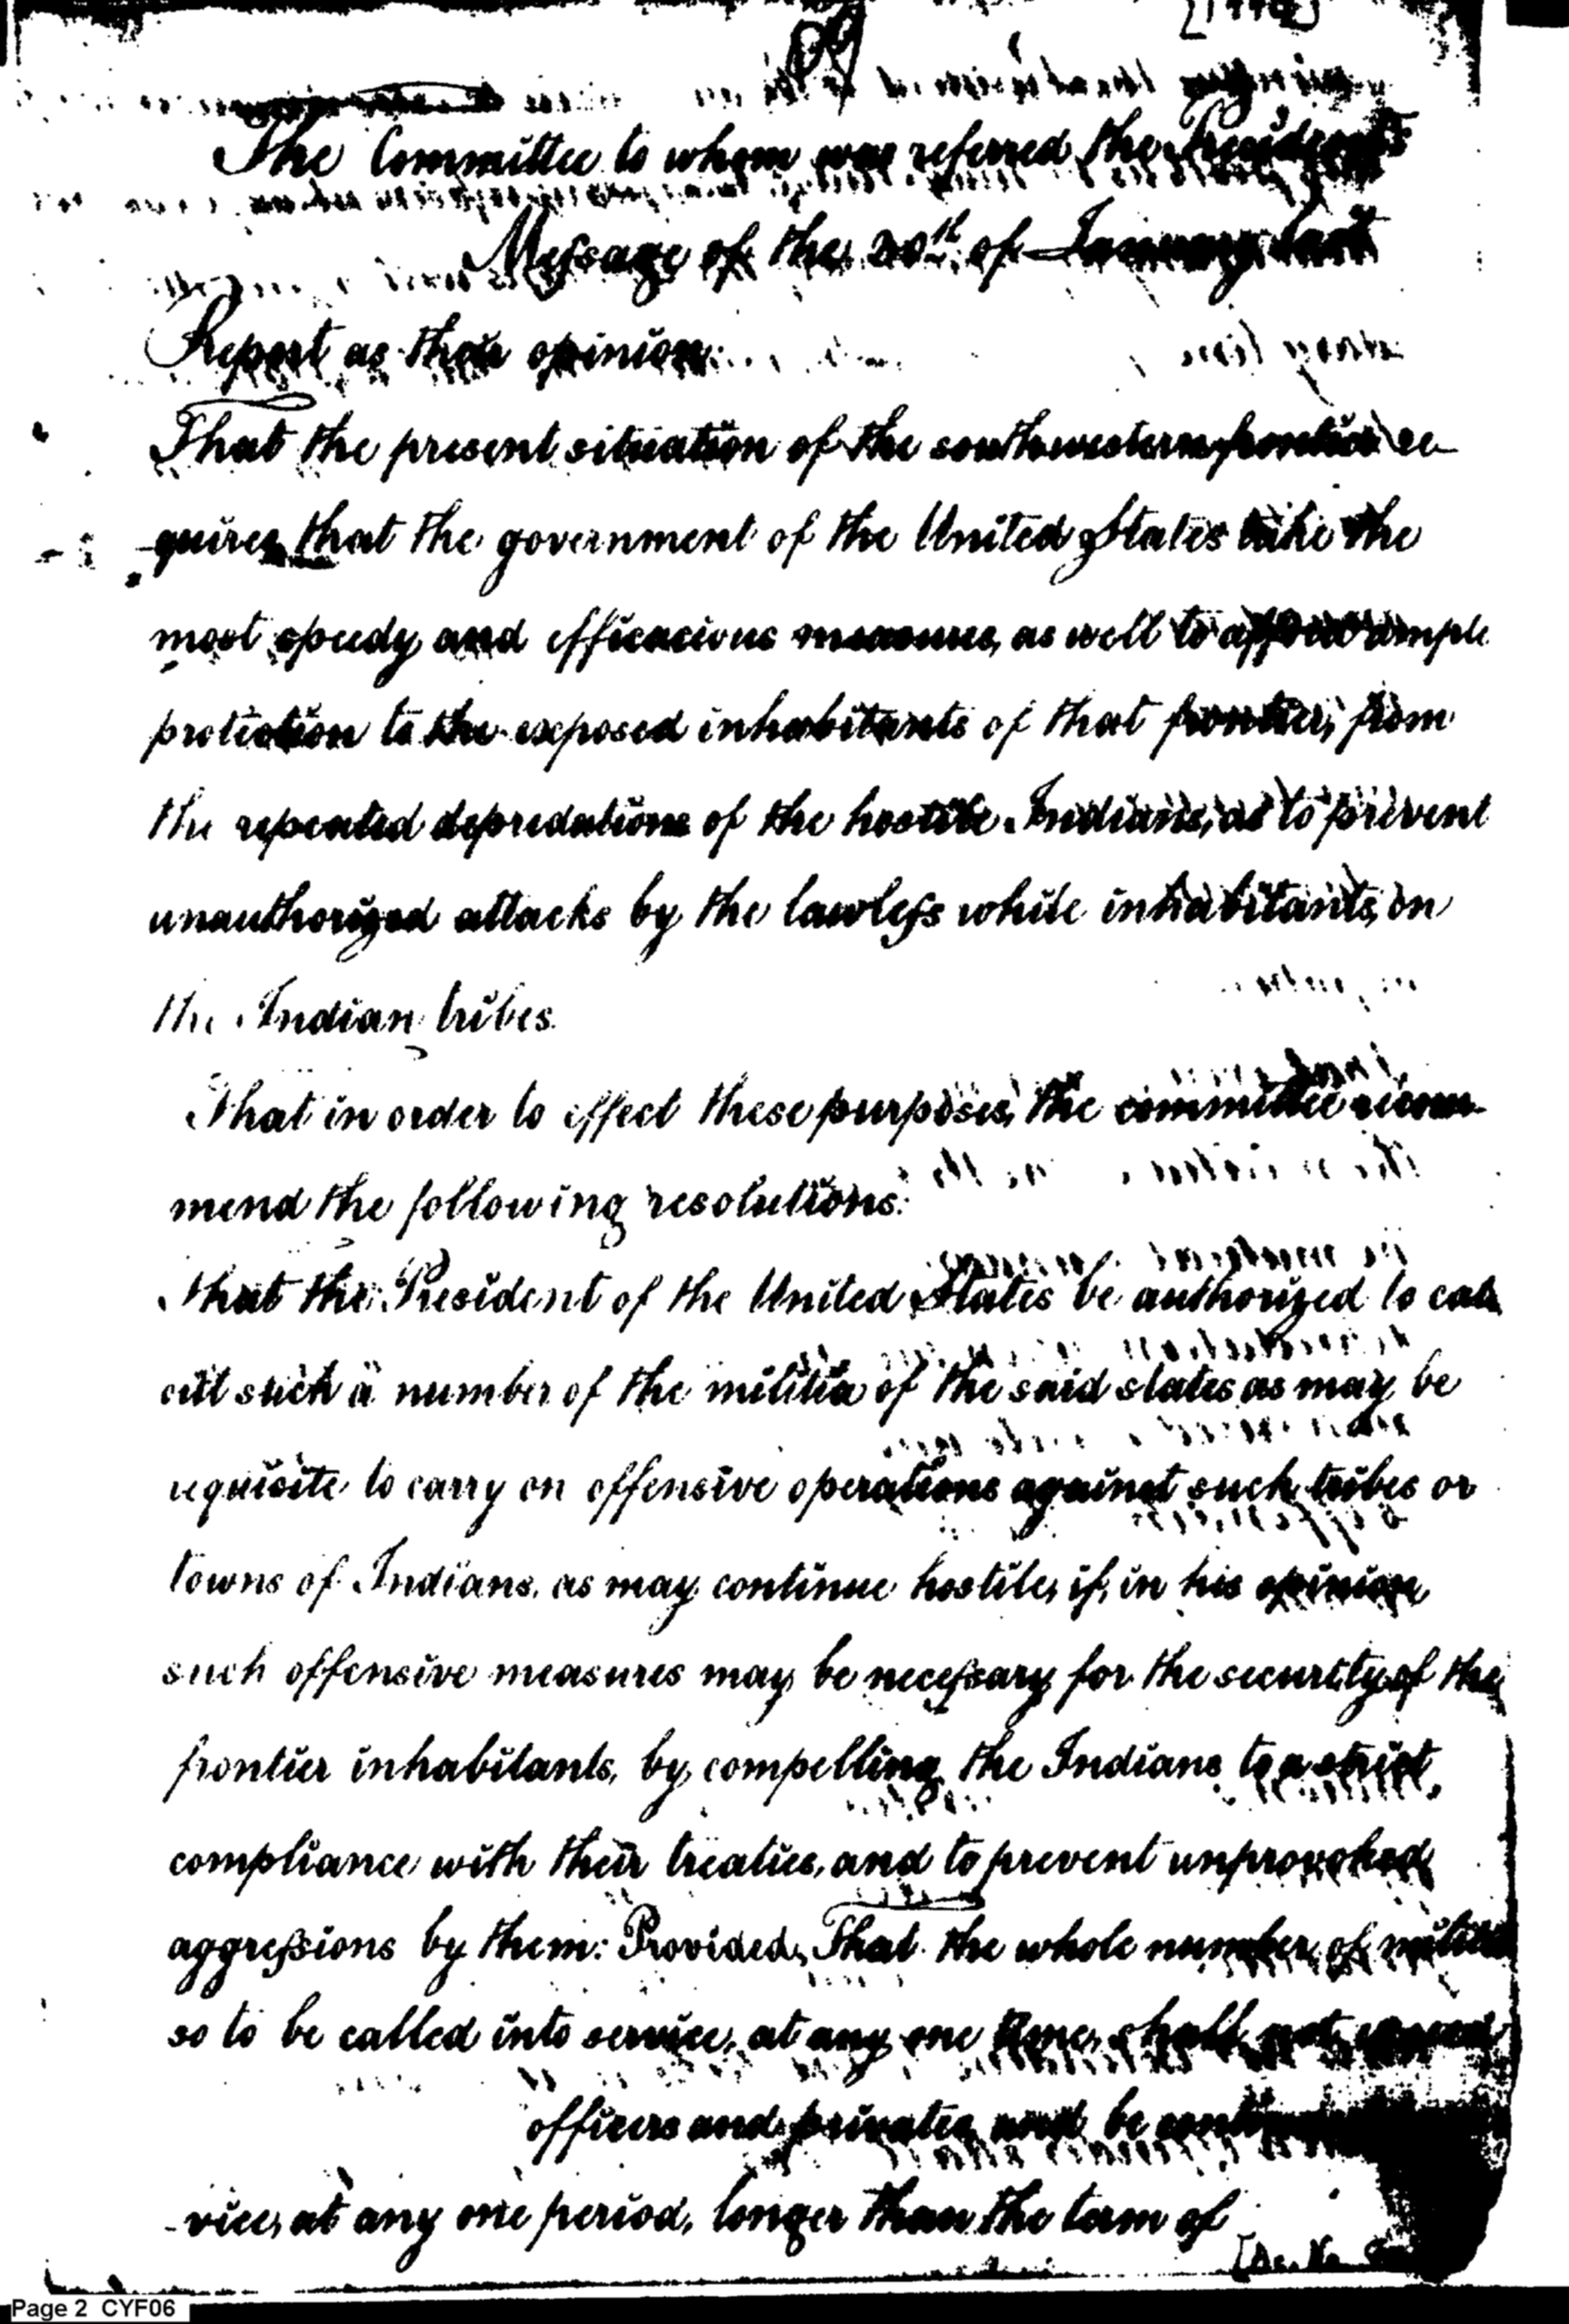 The Committee to whom was referred the President's
Message of the 20th of January last
Report as their opinion:
That the present situation of the southwestern frontier re-
quires that the government of the United States take the
most speedy and efficacious measures, as well to afford ample
protection to the exposed inhabitants of that frontier, from
the repeated depredations of the hostile Indians, as to prevent
unauthorized attacks by the lawless white inhabitants, on
the Indian tribes.
That in order to effect these purposes, the committee recom-
mend the following resolutions:
That the President of the United States be authorized to call
out such a number of the militia of the said states as may be
requisite to carry on offensive operations against such tribes or
towns of Indians, as may continue hostile, if, in his opinion,
such offensive measures may be necessary for the security of the
frontier inhabitants, by compelling the Indians to a strict
compliance with their treaties, and to prevent unprovoked
aggressions by them: Provided, That the whole number of militia
so to be called into service, at any one time, shall not exceed
officers and privates, and be
-vice, at any one period, longer than the term of
Page 2 CYF06